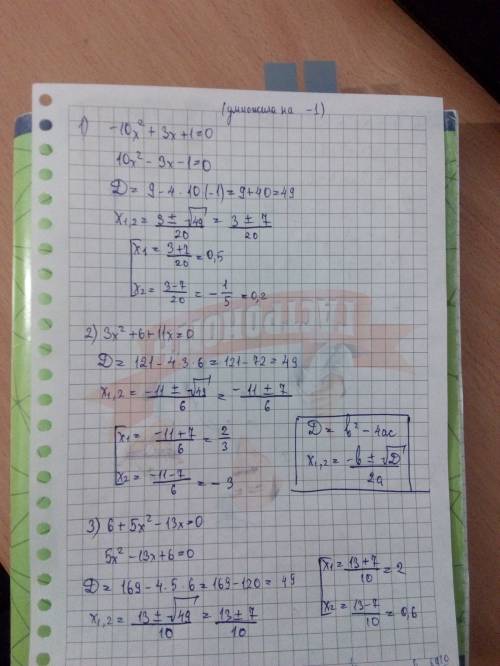 (умножила на -1)
1) -10x² + 3x + 1 = 0
10x² - 3x - 1 = 0
D = 9 - 4 · 10 (-1) = 9 + 40 = 49
x₁,₂ = (3 ± √49)/20 = (3 ± 7)/20
x₁ = (3+7)/20 = 0,5
x₂ = (3-7)/20 = -1/5 = 0,2
2) 3x² + 6 + 11x = 0
D = 121 - 4·3·6 = 121 - 72 = 49
x₁,₂ = (-11 ± √49)/6 = (-11 ± 7)/6
x₁ = (-11+7)/6 = 2/3
x₂ = (-11-7)/6 = -3
D = b² - 4ac
x₁,₂ = (-b ± √D)/2a
3) 6 + 5x² - 13x = 0
5x² - 13x + 6 = 0
D = 169 - 4·5·6 = 169 - 120 = 49
x₁,₂ = (13 ± √49)/10 = (13 ± 7)/10
x₁ = (13+7)/10 = 2
x₂ = (13-7)/10 = 0,6